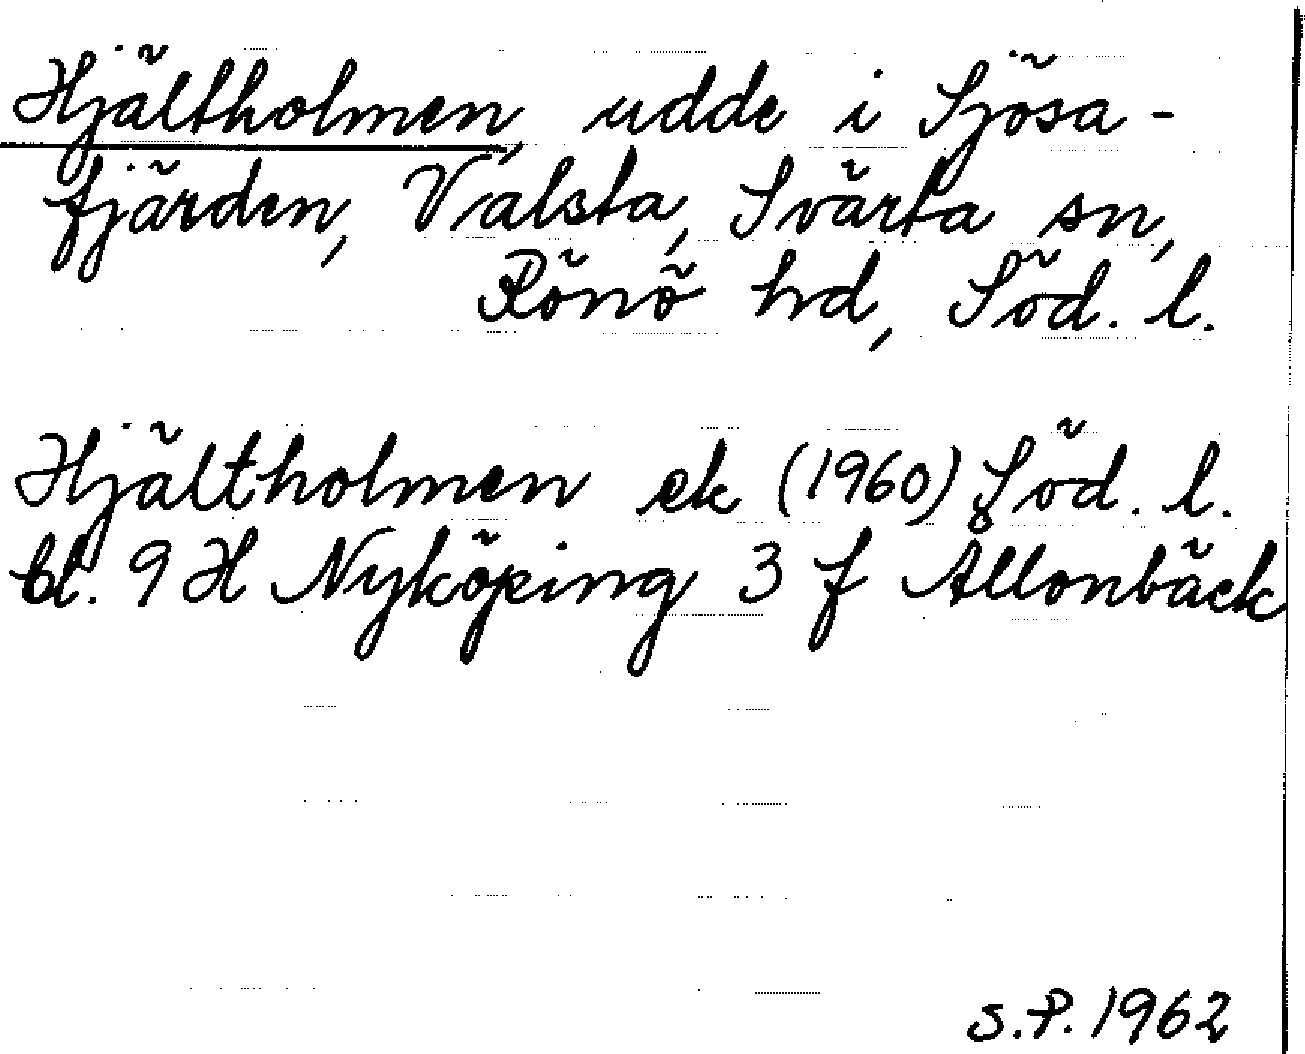 Hjältholmen, udde i Sjösa-
fjärden, Valsta, Svärta sn,
Rönö hd, Söd. l.
Hjältholmen ek (1960) Söd. l.
bl. 9 H Nyköping 3 f Ållonbäck
S.P. 1962